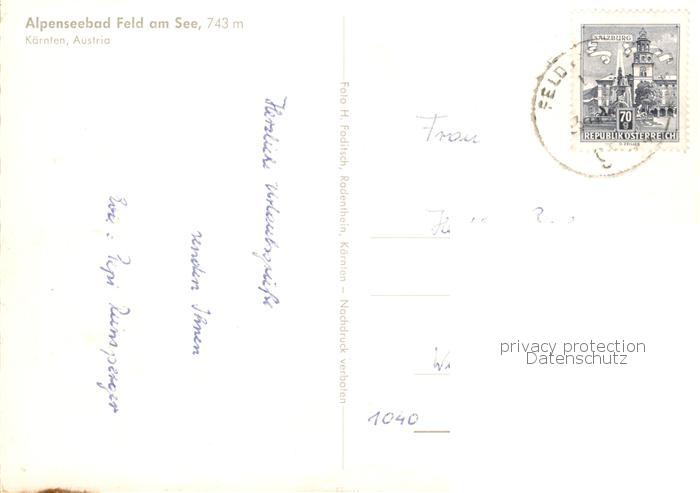 Alpenseebad Feld am See, 743 m
Kärnten, Austria
Herzliche Urlaubsgrüße
senden Ihnen
Foto H. Foditsch, Radenthein, Kärnten – Nachdruck verboten
SALZBURG
70
REPUBLIK ÖSTERREICH
FELD
Frau
1040
privacy protection
Datenschutz